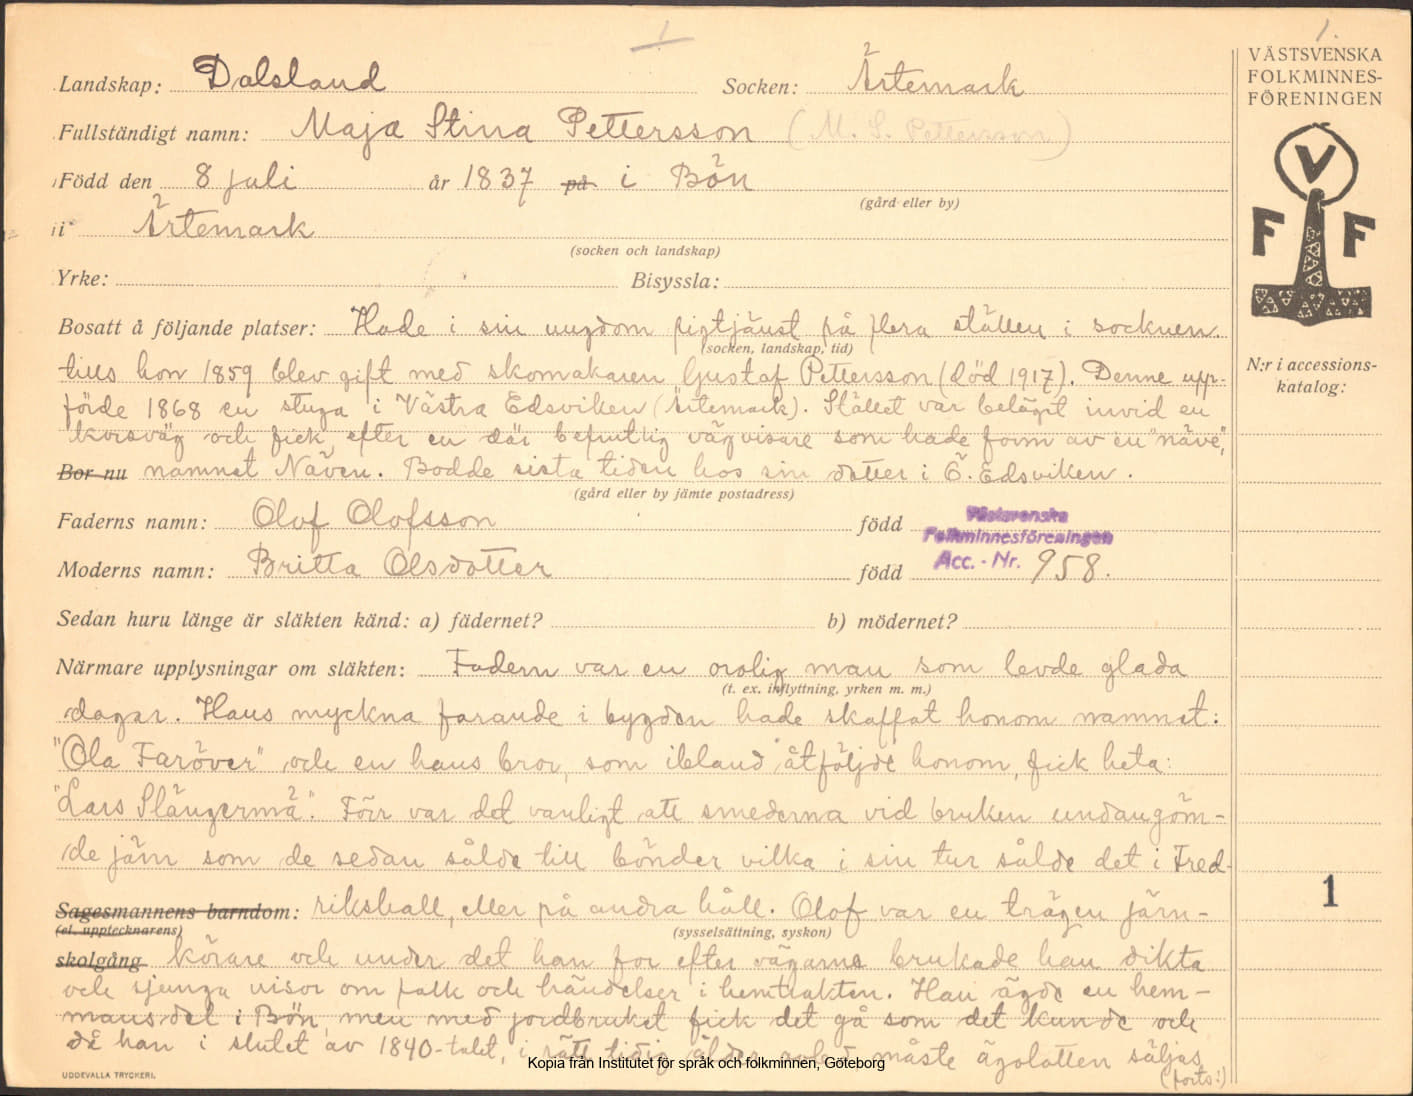 1
1.
Landskap: Dalsland Socken: Ärtemark
Fullständigt namn: Maja Stina Pettersson (M. S. Pettersson)
Född den 8 juli år 1837 på i Bön
(gård eller by)
i Ärtemark
(socken och landskap)
Yrke: Bisyssla:
Bosatt å följande platser: Hade i sin ungdom pigtjänst på flera ställen i socknen.
(socken, landskap, tid)
tills hon 1859 blev gift med skomakaren Gustaf Pettersson (död 1917). Denne upp-
förde 1868 en stuga i Västra Edsviken (Ärtemark). Stället var beläget invid en
korsväg och fick, efter en där befintlig vägvisare som hade form av en "näve",
Bor nu namnet Näven. Bodde sista tiden hos sin dotter i Ö. Edsviken.
(gård eller by jämte postadress)
Faderns namn: Olof Olofsson född
Moderns namn: Britta Olsdotter född
Västsvenska
Folkminnesföreningen
Acc. - Nr. 958.
Sedan huru länge är släkten känd: a) fädernet? b) mödernet?
Närmare upplysningar om släkten: Fadern var en orolig man som levde glada
(t. ex. inflyttning, yrken m. m.)
dagar. Hans myckna farande i bygden hade skaffat honom namnet:
"Ola Faröver" och en hans bror, som ibland åtföljde honom, fick heta:
"Lars Slängermä". Förr var det vanligt att smederna vid bruken undangöm-
de järn som de sedan sålde till bönder vilka i sin tur sålde det i Fred-
Sagesmannens barndom: rikshall, eller på andra håll. Olof var en trägen järn-
(el. upptecknarens) (sysselsättning, syskon)
skolgång körare och under det han for efter vägarna brukade han dikta
och sjunga visor om folk och händelser i hemtrakten. Han ägde en hem-
mansdel i Bön, men med jordbruket fick det gå som det kunde och
då han i slutet av 1840-talet, i rätt tidig ålder måste ägolotten säljas
(forts!)
UDDEVALLA TRYCKERI.
Kopia från Institutet för språk och folkminnen, Göteborg
VÄSTSVENSKA
FOLKMINNES-
FÖRENINGEN
V
F F
N:r i accessions-
katalog:
1